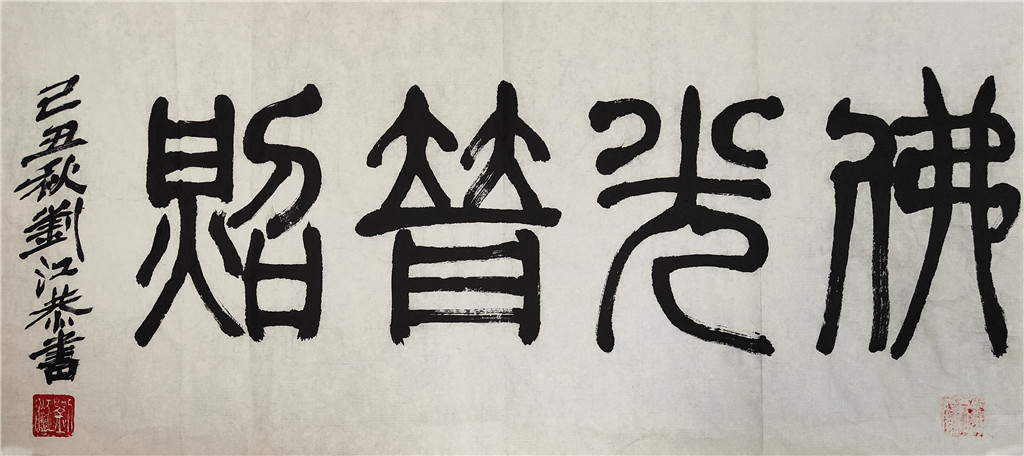 佛光普照
己丑秋劉江恭書